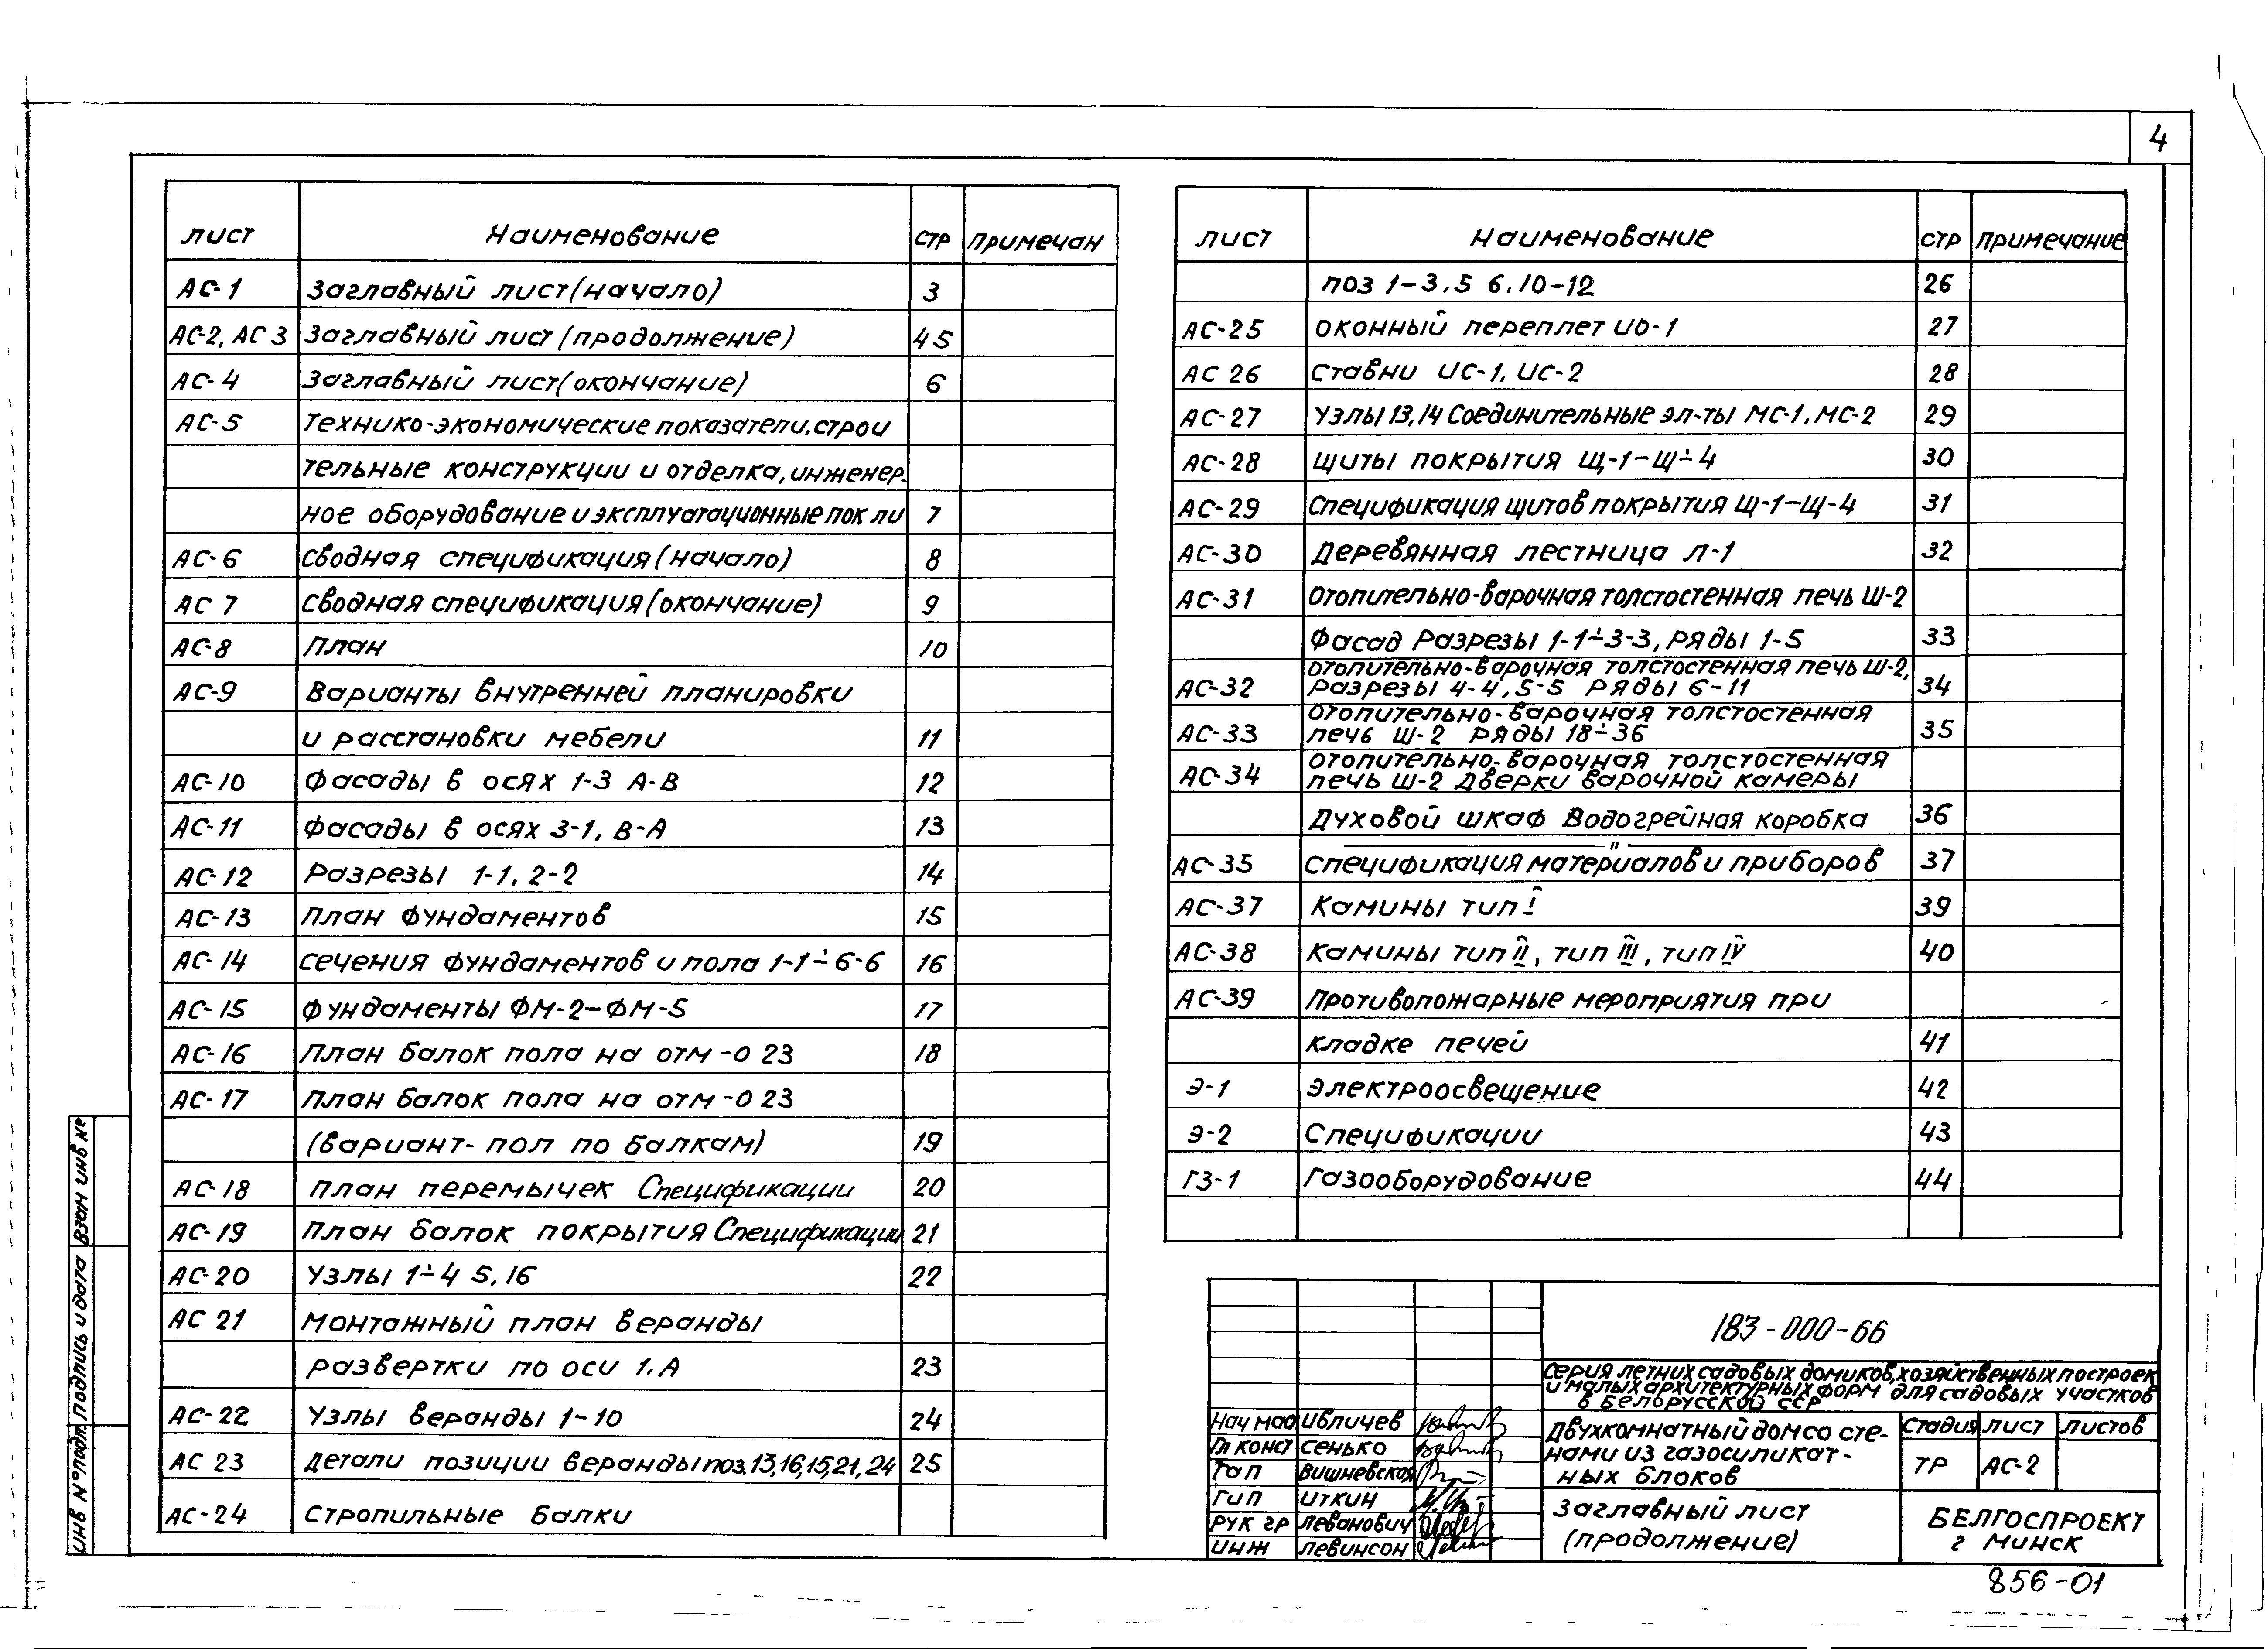 4
лист Наименование стр примечан
АС-1 Заглавный лист (начало) 3
АС-2, АС 3 Заглавный лист (продолжение) 4 5
АС-4 Заглавный лист (окончание) 6
АС-5 Технико-экономические показатели, строи
тельные конструкции и отделка, инженер-
ное оборудование и эксплуатационные пок ли 7
АС-6 Сводная спецификация (начало) 8
АС 7 Сводная спецификация (окончание) 9
АС-8 План 10
АС-9 Варианты внутренней планировки
и расстановки мебели 11
АС-10 Фасады в осях 1-3 А-В 12
АС-11 Фасады в осях 3-1, В-А 13
АС-12 Разрезы 1-1, 2-2 14
АС-13 План фундаментов 15
АС-14 Сечения фундаментов и пола 1-1÷6-6 16
АС-15 Фундаменты ФМ-2–ФМ-5 17
АС-16 План балок пола на отм -0 23 18
АС-17 План балок пола на отм -0 23
(вариант- пол по балкам) 19
АС-18 План перемычек Спецификации 20
АС-19 План балок покрытия Спецификации 21
АС-20 Узлы 1÷4 5, 16 22
АС 21 Монтажный план веранды
развертки по оси 1, А 23
АС-22 Узлы веранды 1-10 24
АС 23 Детали позиции веранды поз. 13, 16, 15, 21, 24 25
АС-24 Стропильные балки
лист Наименование стр примечание
поз 1-3, 5 6, 10-12 26
АС-25 Оконный переплет ИО-1 27
АС 26 Ставни ИС-1, ИС-2 28
АС-27 Узлы 13, 14 Соединительные эл-ты МС-1, МС-2 29
АС-28 Щиты покрытия Щ-1-Щ÷4 30
АС-29 Спецификация щитов покрытия Щ-1-Щ-4 31
АС-30 Деревянная лестница Л-1 32
АС-31 Отопительно-варочная толстостенная печь Ш-2
Фасад Разрезы 1-1÷3-3, ряды 1-5 33
Отопительно-варочная толстостенная печь Ш-2,
АС-32 разрезы 4-4, 5-5 Ряды 6-11 34
Отопительно-варочная толстостенная
АС-33 печь Ш-2 ряды 18÷36 35
Отопительно-варочная толстостенная
АС-34 печь Ш-2 Дверки варочной камеры
Духовой шкаф Водогрейная коробка 36
— " —
АС-35 Спецификация материалов и приборов 37
АС-37 Камины тип I 39
АС-38 Камины тип II, тип III, тип IV 40
АС-39 Противопожарные мероприятия при
кладке печей 41
Э-1 Электроосвещение 42
Э-2 Спецификации 43
ГЗ-1 Газооборудование 44
183-000-66
Серия летних садовых домиков, хозяйственных построек
и малых архитектурных форм для садовых участков
в Белорусской ССР
Нач мас Ибличев
Гл конст Сенько
ГАП Вишневская
ГИП Иткин
Рук гр Леванович
Инж Левинсон
Двухкомнатный дом со сте-
нами из газосиликат-
ных блоков
Стадия лист листов
ТР АС-2
Заглавный лист
(продолжение)
БЕЛГОСПРОЕКТ
г Минск
856-01
Взам инв №
Подпись и дата
Инв № подл.